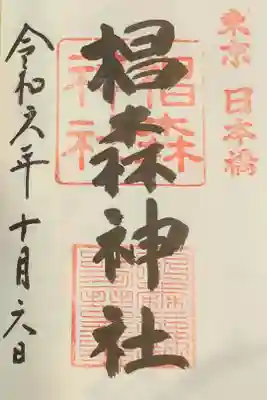 東京 日本橋
椙森神社
椙森神社
令和六年十月六日